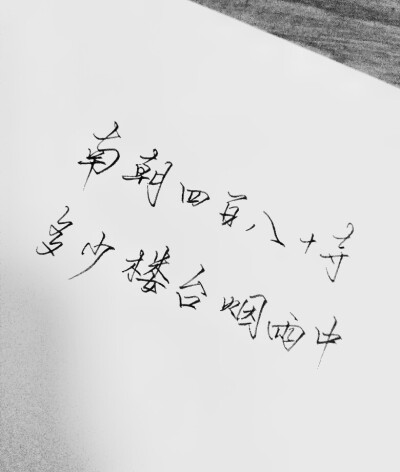 南朝四百八十寺
多少楼台烟雨中